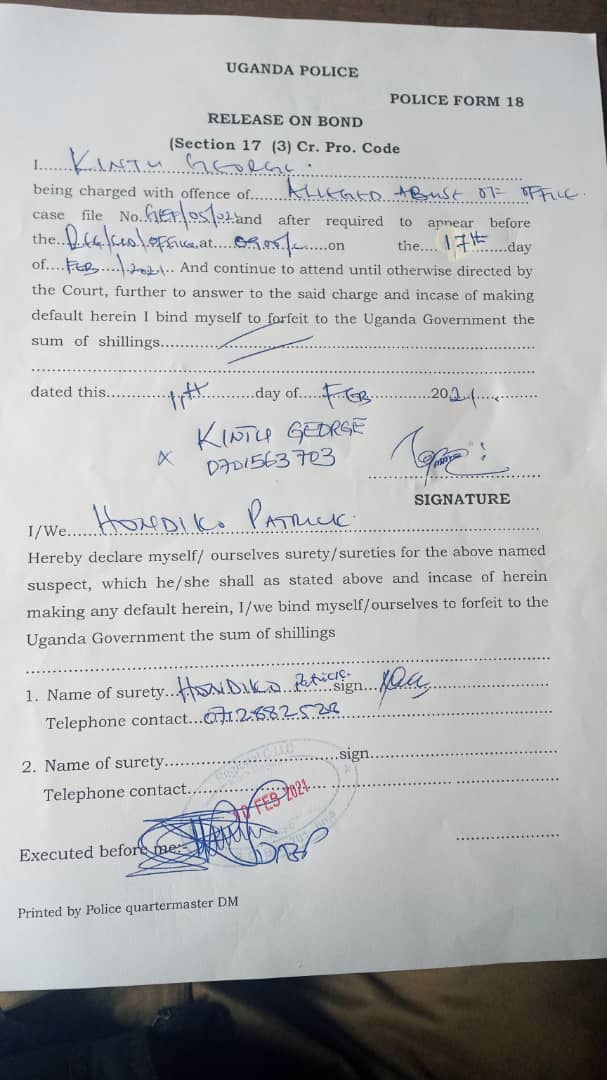 UGANDA POLICE
POLICE FORM 18
RELEASE ON BOND
(Section 17 (3) Cr. Pro. Code
I...... KINTU GEORGE.
being charged with offence of...... ALLEGED ABUSE OF OFFICE.
case file No. and after required to appear before
the.... office at.... on the.... 17th ........day
of.... FEB ..../.2021.. And continue to attend until otherwise directed by
the Court, further to answer to the said charge and incase of making
default herein I bind myself to forfeit to the Uganda Government the
sum of shillings
dated this............ 11th ............day of.... FEB ............2021
KINTU GEORGE
X 0701563703
SIGNATURE
I/We...... HONDIKO PATRICK.
Hereby declare myself/ ourselves surety/sureties for the above named
suspect, which he/she shall as stated above and incase of herein
making any default herein, I/we bind myself/ourselves to forfeit to the
Uganda Government the sum of shillings
1. Name of surety... HONDIKO Patrick. sign...
Telephone contact... 0712882528
2. Name of surety..............................sign.
Telephone contact
10 FEB 2021
Executed before me:-
Printed by Police quartermaster DM